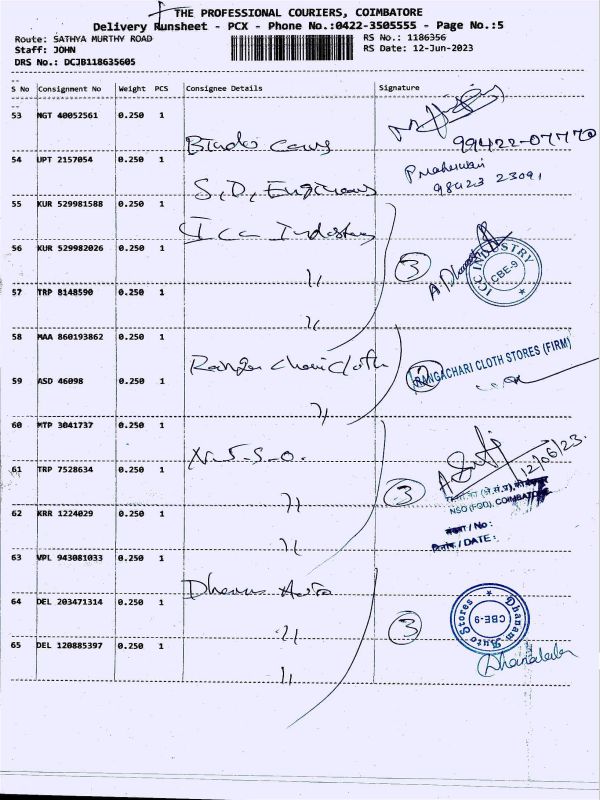 THE PROFESSIONAL COURIERS, COIMBATORE
Delivery Runsheet - PCX - Phone No.:0422-3505555 - Page No.:5
Route: SATHYA MURTHY ROAD
RS No.: 1186356
Staff: JOHN
RS Date: 12-Jun-2023
DRS No.: DCJB118635605
S No Consignment No Weight PCS Consignee Details Signature
53 MGT 40052561 0.250 1
99422-07770
54 UPT 2157054 0.250 1 S.D. Engineers
98423 23091
55 KUR 529981588 0.250 1 Icc Industry
56 KUR 529982026 0.250 1 〃 3
ICC INDUSTRY CBE-9
57 TRP 8148590 0.250 1 〃
58 MAA 860193862 0.250 1 Rangachari Cloth
RANGACHARI CLOTH STORES (FIRM)
59 ASD 46098 0.250 1 〃
60 MTP 3041737 0.250 1 N.S.S.O.
12/06/23.
61 TRP 7528634 0.250 1 〃 3
NSO (FOD), COIMBATORE
62 KRR 1224029 0.250 1 〃
/ No :
/ DATE :
63 VPL 943081033 0.250 1 Dhanam Auto
64 DEL 203471314 0.250 1 〃 3
Dhanam Auto Stores CBE-9
65 DEL 120885397 0.250 1 〃